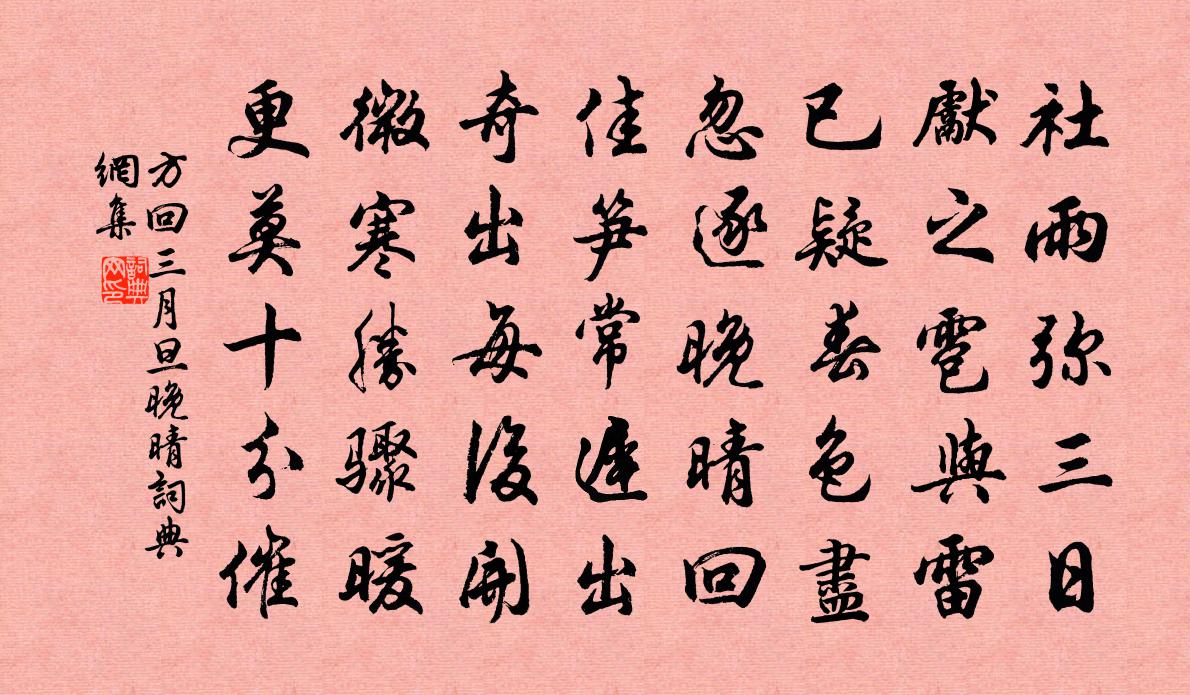 社雨弥三日
獻之雹與雷
已疑春色盡
忽逐晚晴回
佳笋常遲出
奇出每後開
微寒勝驟暖
更莫十分催
方回三月旦晚晴詞典
網集
詞典網印